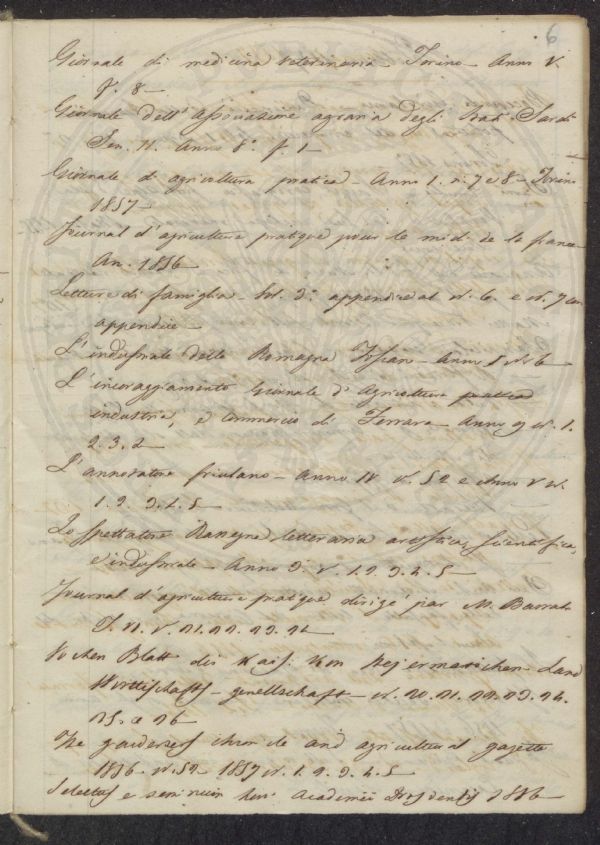 6
Giornale di medicina veterinaria - Torino - Anno V.
f. 8 -
Giornale dell'associazione agraria degli Stati Sardi
Anno 8° f. 1 -
Giornale di agricoltura pratica - Anno 1. n. 7 e 8 - Torino
1857 -
Journal d'agriculture pratique pour le midi de la france
An. 1856 -
Letture di famiglia - appendice al N. 6. e N. 7 con
appendice -
L'industriale della Romagna Toscana - Anno 1 N. 6
L'incoraggiamento Giornale d'Agricoltura pratica
industria, e Commercio di Ferrara Anno 9 N. 1.
2. 3. 2
L'annotatore friulano - Anno IV N. 52 e Anno V N.
1. 2. 3. 4. 5 -
Lo Spettatore Rassegna letteraria artistica, scientifica,
e industriale - Anno 3. N. 1. 2. 3. 4. 5 -
Journal d'agriculture pratique dirigé par M. Barral
T. VI. N. 21. 22. 23. 24
Wochen Blatt der Kais. Kon Land
Wirttschafts - gesellschaft - N. 20. 21. 22. 23. 24.
25. e 26
The gardeners chronicle and agricultural gazette
1856. N. 52 - 1857 N. 1. 2. 3. 4. 5
Selectus e seminum Academii 1856 -